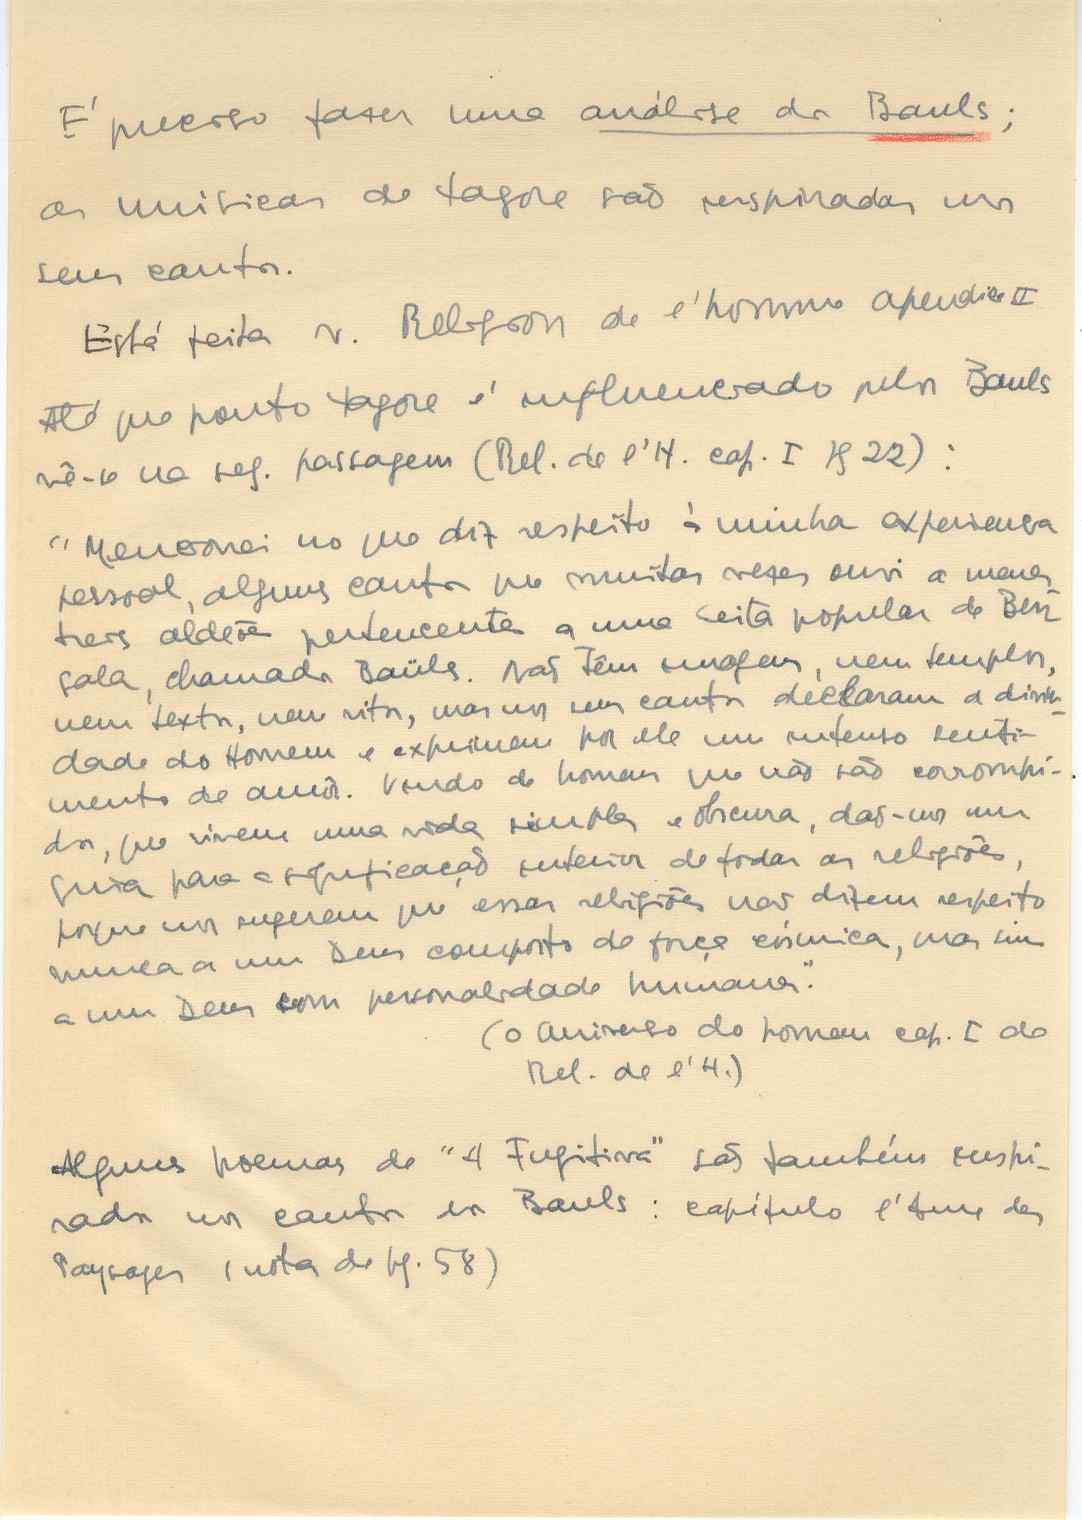 É preciso fazer uma análise dos Bauls;
as músicas de Tagore são inspiradas nos
seus cantos.
Está feita v. Religion de l'homme apendice II
Até que ponto Tagore é influenciado pelos Bauls
vê-se na seg. passagem (Rel. de l'H. cap. I pg 22) :
"Mencionei no que diz respeito à minha experiencia
pessoal, alguns cantos que muitas vezes ouvi a menes
treis aldeões pertencentes a uma seita popular de Ben
gala, chamada Baüls. Não têm imagens, nem templos,
nem textos, nem ritos, mas nos seus cantos declaram a divin
dade do Homem e exprimem por ele um intenso senti-
mento de amor. Vindo de homens que não são corrompi-
dos, que vivem uma vida simples e obscura, dão-nos um
guia para a significação interior de todas as religiões,
porque nos sugerem que essas religiões não dizem respeito
nunca a um Deus composto de força cósmica, mas sim
a um Deus com personalidade humana."
(O Universo do homem cap. I do
Rel. de l'H.)
Alguns poemas de "A Fugitiva" são também inspi-
rados nos cantos dos Bauls : capítulo l'âme des
Paysages (nota de pg. 58)